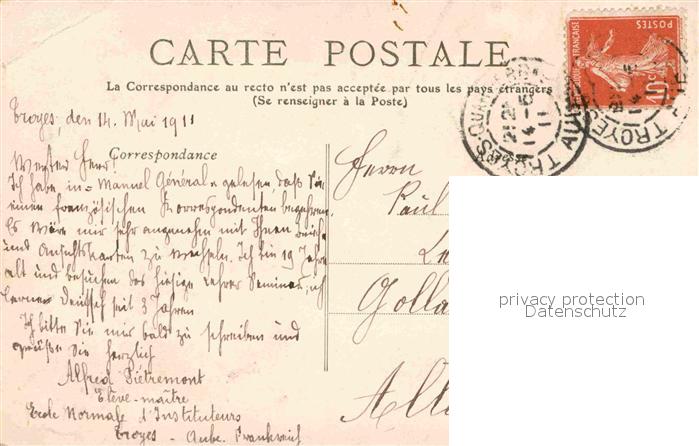 CARTE POSTALE
La Correspondance au recto n'est pas acceptée par tous les pays étrangers
(Se renseigner à la Poste)
Troyes, den 14. Mai 1911
Correspondance
Werter Herr!
Ich habe in "Manuel Général" gelesen daß Sie
einen französischen Korrespondenten begehren.
Es wäre mir sehr angenehm mit Ihnen
und Ansichtskarten zu wechseln. Ich bin 19 Jahre
alt und besuchen das hiesige Lehrer Seminar; ich
lerne Deutsch seit 3 Jahren
Ich bitte Sie mir bald zu schreiben und
grüße Sie herzlich
Alfred Piétremont
Elève-maître
Ecole Normale d'Instituteurs
Troyes - Aube. Frankreich
Herrn
Paul
Golla
POSTES
10
TROYES
AUBE
TROYES
privacy protection
Datenschutz